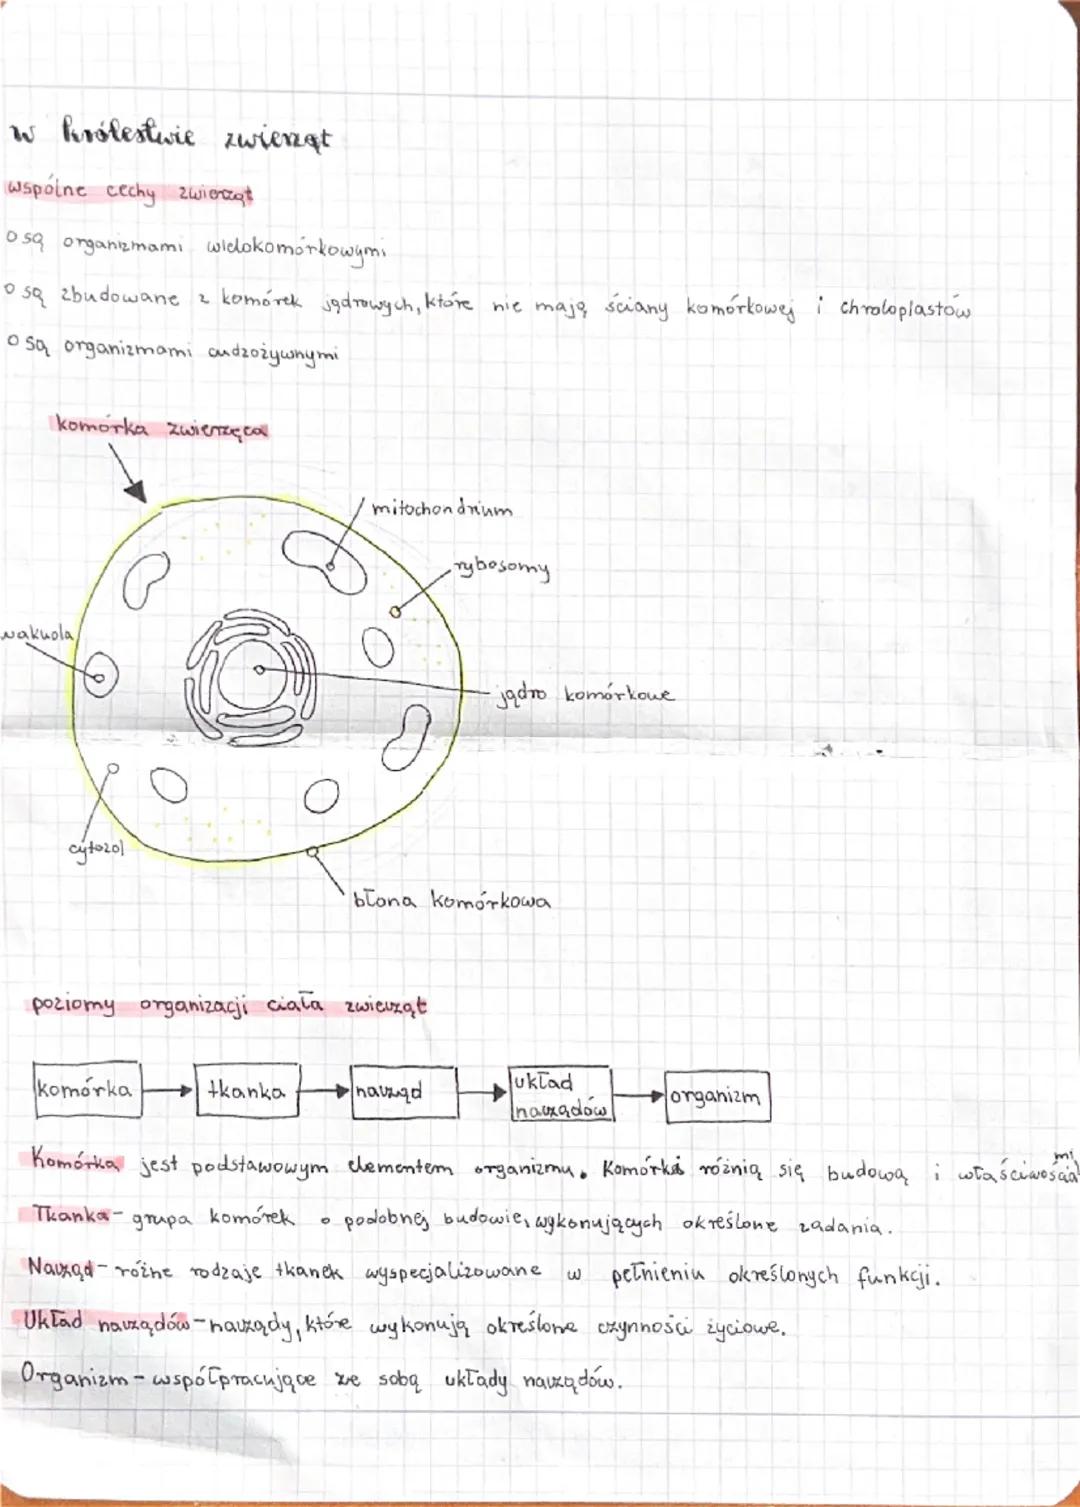 w królestwie zwierząt
wspólne cechy zwierząt
o są organizmami wielokomórkowymi
o są zbudowane z komórek jądrowych, które nie mają ściany komórkowej i chroloplastów
o są organizmami cudzożywnymi
komórka zwierzęca
mitochondrium
rybosomy
wakuola
jądro komórkowe
cytozol
błona komórkowa
poziomy organizacji ciała zwierząt
komórka tkanka narząd układ narządów organizm
Komórka jest podstawowym elementem organizmu. Komórki różnią się budową i właściwościami
Tkanka - grupa komórek o podobnej budowie, wykonujących określone zadania.
Narząd - różne rodzaje tkanek wyspecjalizowane w pełnieniu określonych funkcji.
Układ narządów - narządy, które wykonują określone czynności życiowe.
Organizm - współpracujące ze sobą układy narządów.